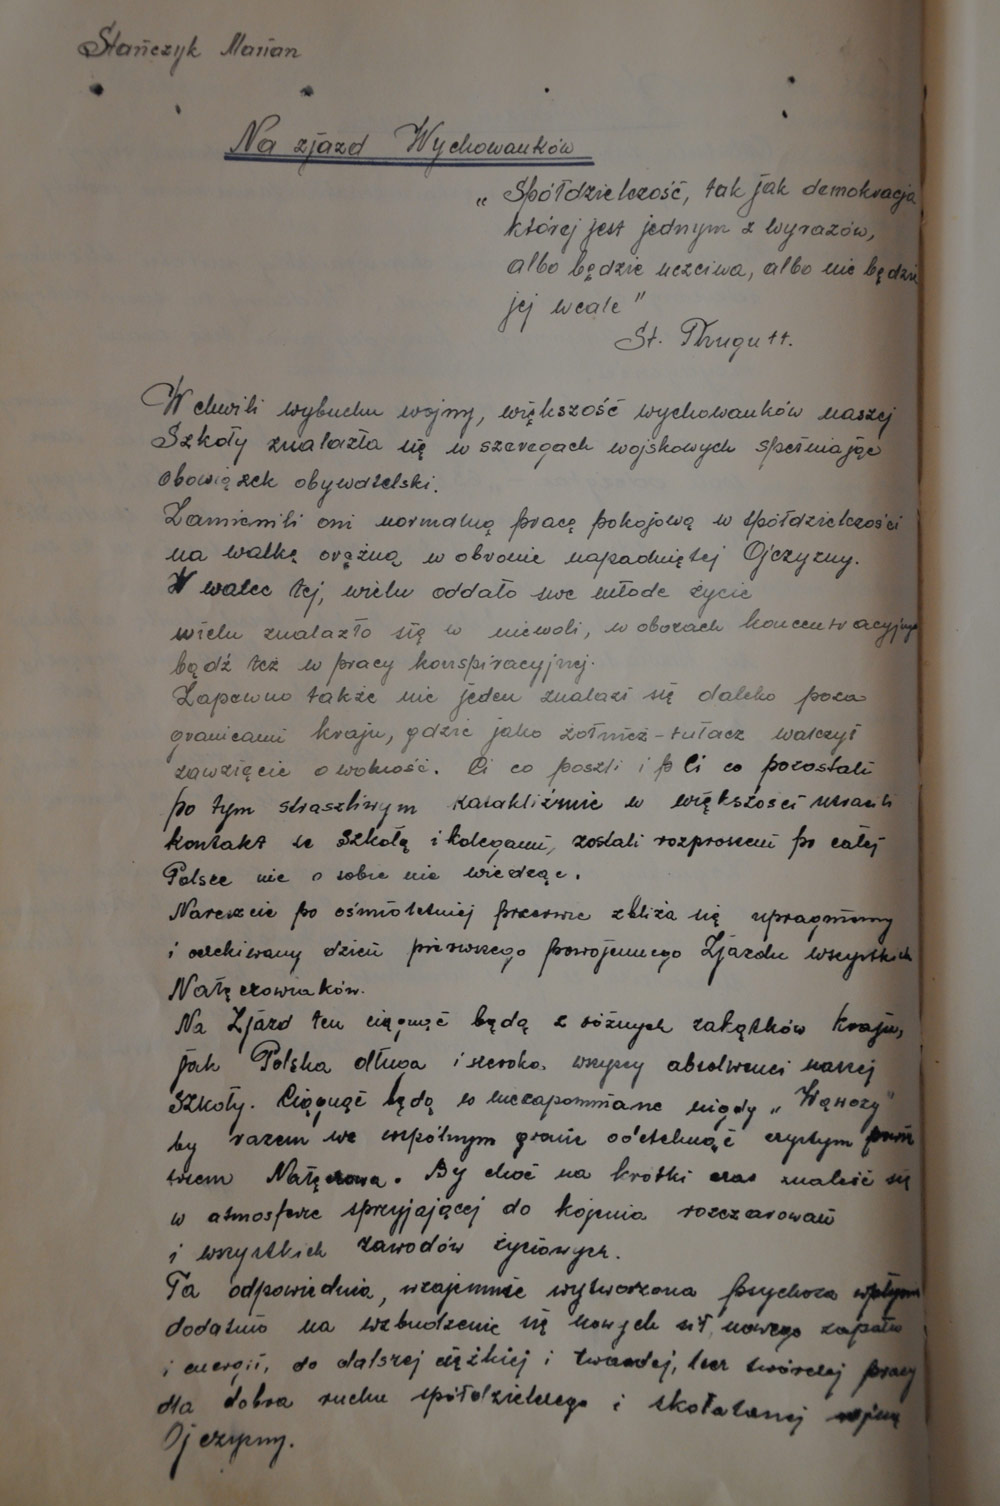 Stańczyk Marian
Na zjazd Wychowanków
„Spółdzielczość, tak jak demokracja
której jest jednym z wyrazów,
albo będzie uczciwa, albo nie będzie
jej wcale"
St. Thugutt.
W chwili wybuchu wojny, większość wychowanków naszej
Szkoły znalazła się w szeregach wojskowych spełniając
obowiązek obywatelski.
Zamienili oni normalną pracę pokojową w spółdzielczości
na walkę orężną w obronie napadniętej Ojczyzny.
W walce tej, wielu oddało swe młode życie
wielu znalazło się w niewoli, w obozach koncentracyjnych
bądź też w pracy konspiracyjnej.
Zapewno także nie jeden znalazł się daleko poza
granicami kraju, gdzie jako żołnież-tułacz walczył
zawzięcie o wolność. Ci co poszli i Ci co pozostali
po tym straszliwym kataklizmie w większości utracili
kontakt ze Szkołą i kolegami, zostali rozproszeni po całej
Polsce nic o sobie nie wiedząc.
Nareszcie po ośmioletniej przerwie zbliża się upragniony
i oczekiwany dzień pierwszego powojennego Zjazdu wszystkich
Nałęczowiaków.
Na Zjazd ten ciągnąć będą z różnych zakątków kraju,
jak Polska długa i szeroka, wszyscy absolwenci naszej
Szkoły. Ciągnąć będą w niezapomniane nigdy „Wąwozy"
by razem we wspólnym gronie odetchnąć czystym powie
trzem Nałęczowa. By choć na krótki czas znaleść się
w atmosferze sprzyjającej do kojenia rozczarowań
i wszystkich zawodów życiowych.
Ta odpowiednia, wzajemnie wytworzona psychoza wpłynie
dodatnio na wzbudzenie się nowych sił, nowego zapału
i energii, do dalszej ciężkiej i twardej, lecz twórczej pracy
dla dobra ruchu spółdzielczego i skołatanej wojną
Ojczyzny.